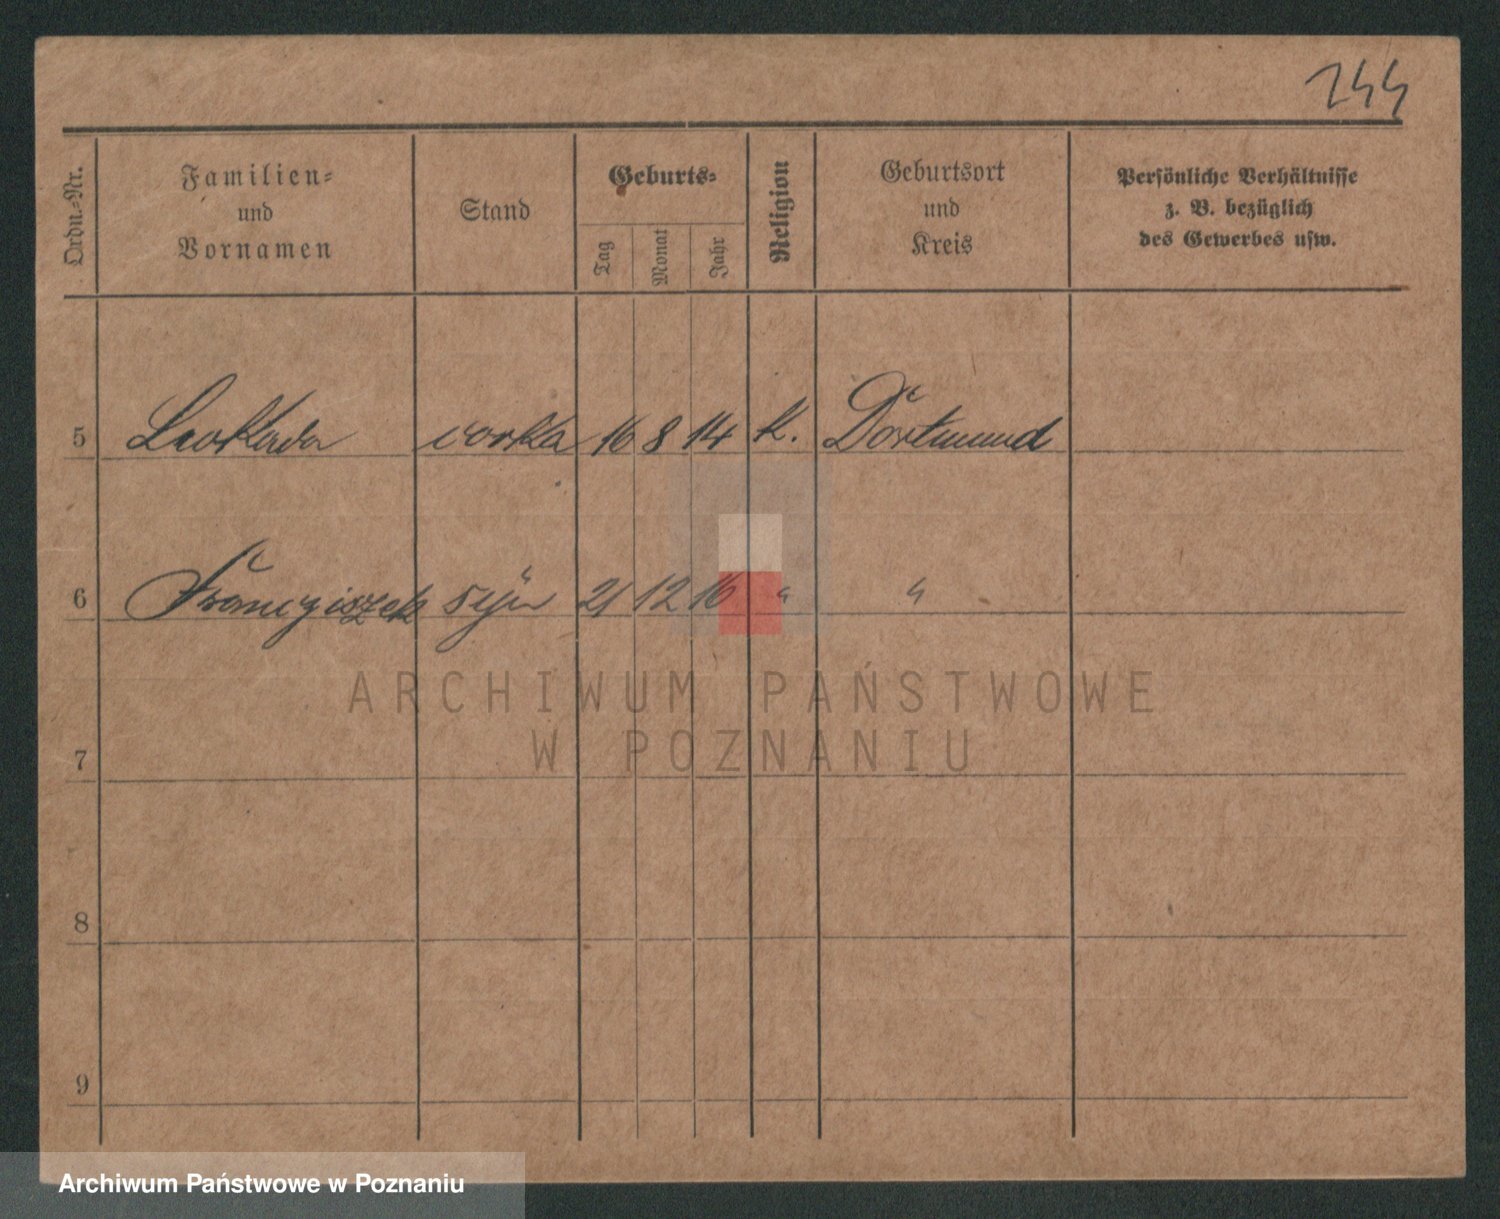 244
Ordn.-Nr.
Familien-
und
Vornamen
Stand
Geburts-
Tag
Monat
Jahr
Religion
Geburtsort
und
Kreis
Persönliche Verhältnisse
z. B. bezüglich
des Gewerbes usw.
5 Leokada corka 16 8 14 K. Dortmund
6 Franciszek syn 21 12 16 " "
ARCHIWUM PAŃSTWOWE
W POZNANIU
7
8
9
Archiwum Państwowe w Poznaniu